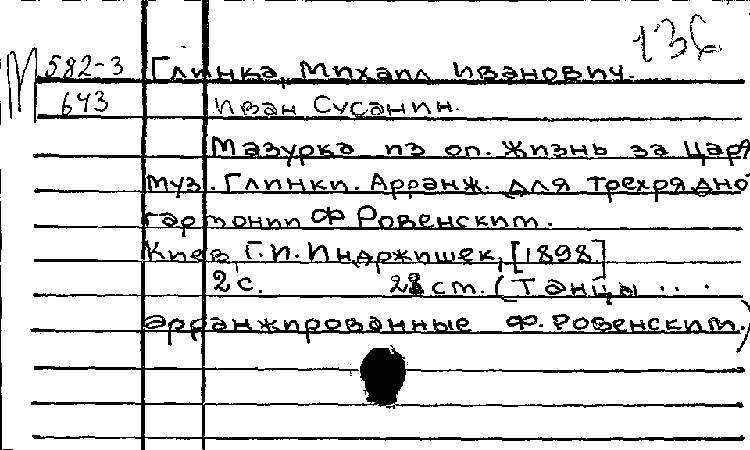 136
М 582-3 Глинка, Михаил Иванович.
643 Иван Сусанин.
Мазурка из оп. Жизнь за Царя
муз. Глинки. Арранж. для трехрядно
гармонии Ф Ровенским.
Киев, Г.И. Индржишек, [1898]
2 с. 28 см. (Танцы ...
арранжированные Ф. Ровенским.)